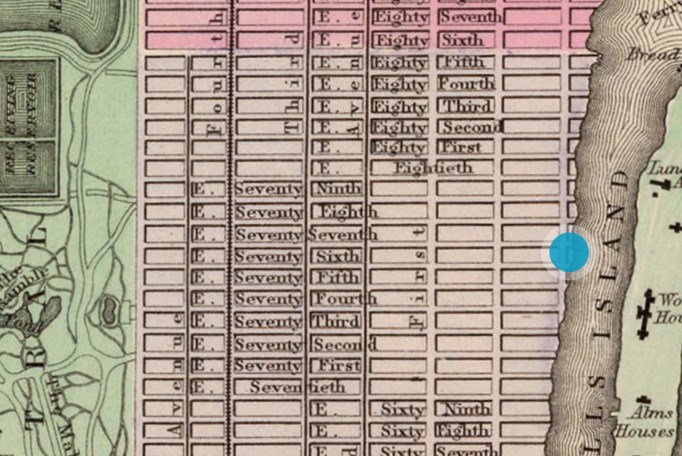 E. Eighty Seventh
E. Eighty Sixth
Eighty Fifth
Eighty Fourth
E. Eighty Third
E. Eighty Second
E. Eighty First
E. Eightieth
E. Seventy Ninth
E. Seventy Eighth
E. Seventy Seventh
E. Seventy Sixth
E. Seventy Fifth
E. Seventy Fourth
E. Seventy Third
E. Seventy Second
E. Seventy First
E. Seventieth
E. Sixty Ninth
E. Sixty Eighth
E. Sixty Seventh
Fourth
Third
Avenue
First
Avenue
RECEIVING
RESERVOIR
The
Ramble
Pond
The Mal
TRAL
LLS ISLAND
Ferry
Bread
Luna
A
Wo
Hou
Alms
Houses